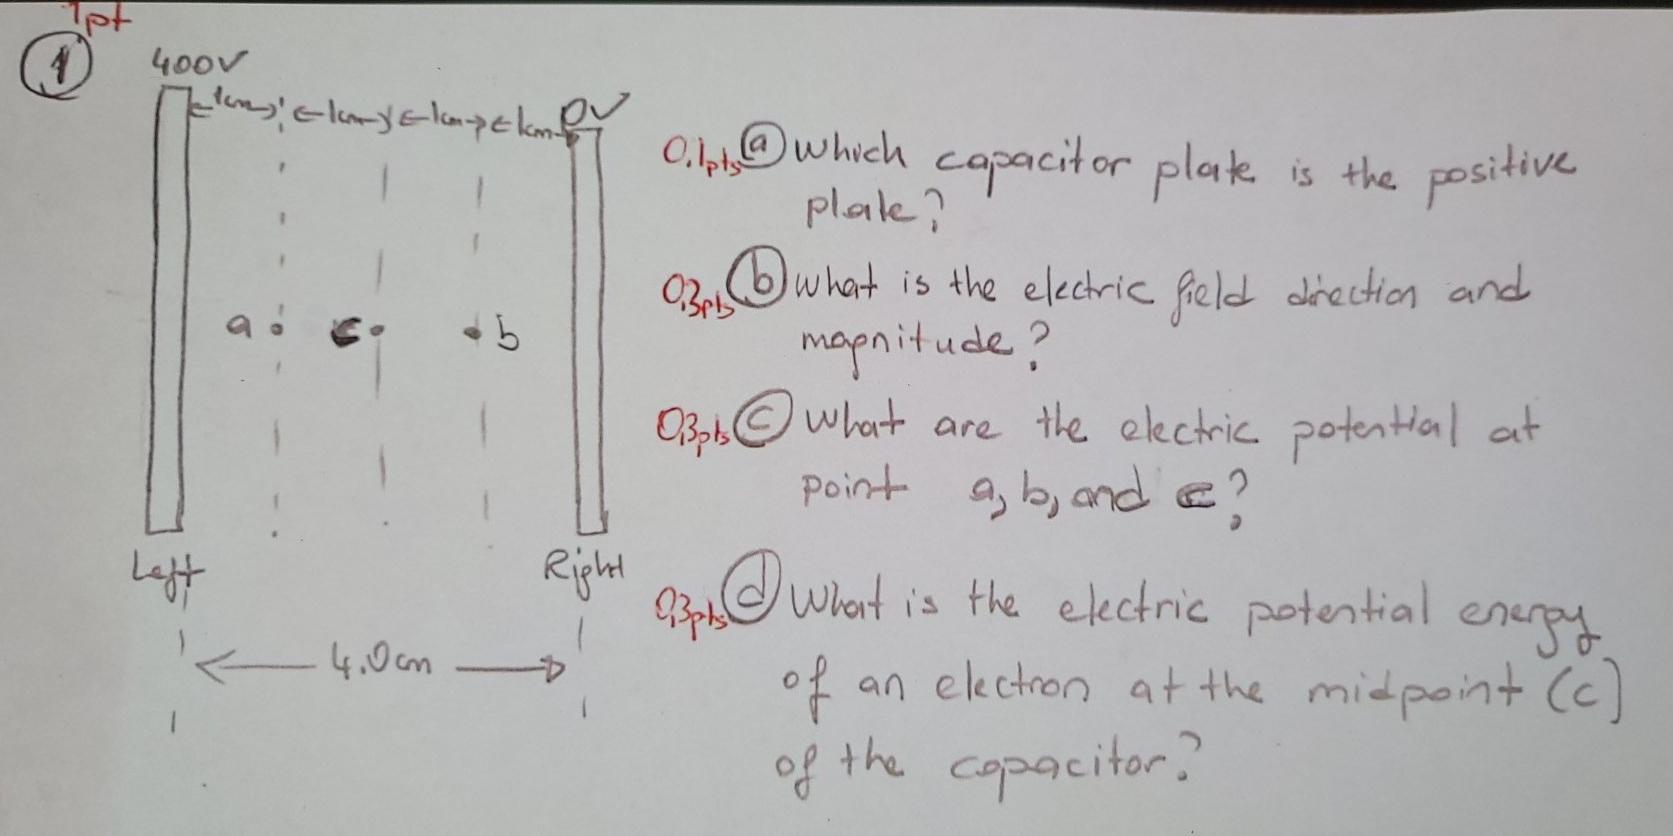 1pt
1
400V
←1cm→ ←1cm→ ←1cm→ ←1cm→ 0V
a c b
Left Right
4.0cm
0.1pts a Which capacitor plate is the positive
plate?
0,3pts b What is the electric field direction and
magnitude?
0,3pts c What are the electric potential at
point a, b, and c?
0,3pts d What is the electric potential energy
of an electron at the midpoint (c)
of the capacitor?